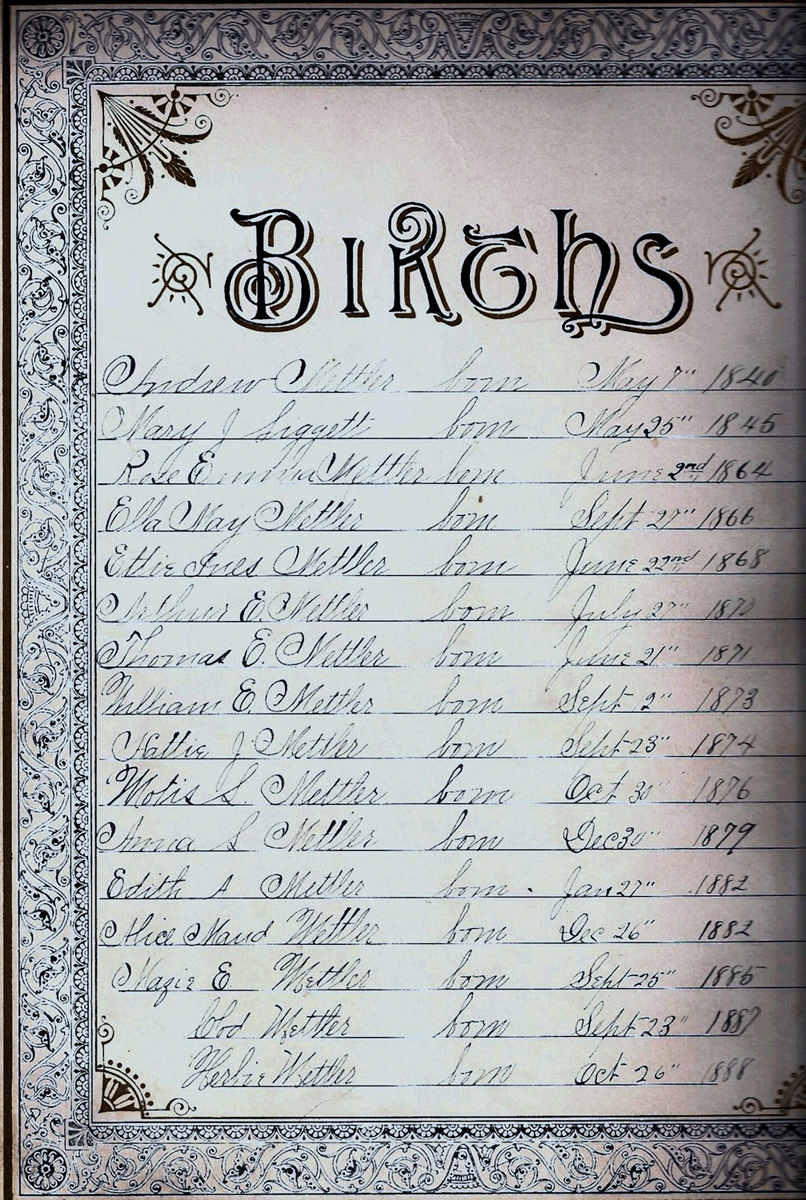 Births
Andrew Mettler born May 7" 1840
Mary J Liggett born May 25" 1845
Rose Emma Mettler born June 2nd 1864
Ella May Mettler born Sept 27" 1866
Ettie Ines Mettler born June 22nd 1868
Arthur E. Mettler born July 27" 1870
Thomas E. Mettler born June 21" 1871
William E. Mettler born Sept 2" 1873
Hattie J Mettler born Sept 23" 1874
Motis S. Mettler born Oct 30" 1876
Anna S Mettler born Dec 30" 1879
Edith A Mettler born Jan 27" 1882
Alice Maud Mettler born Dec 26" 1882
Mazie E Mettler born Sept 25" 1885
Obd Mettler born Sept 23" 1887
Herbie Mettler born Oct 26" 1888